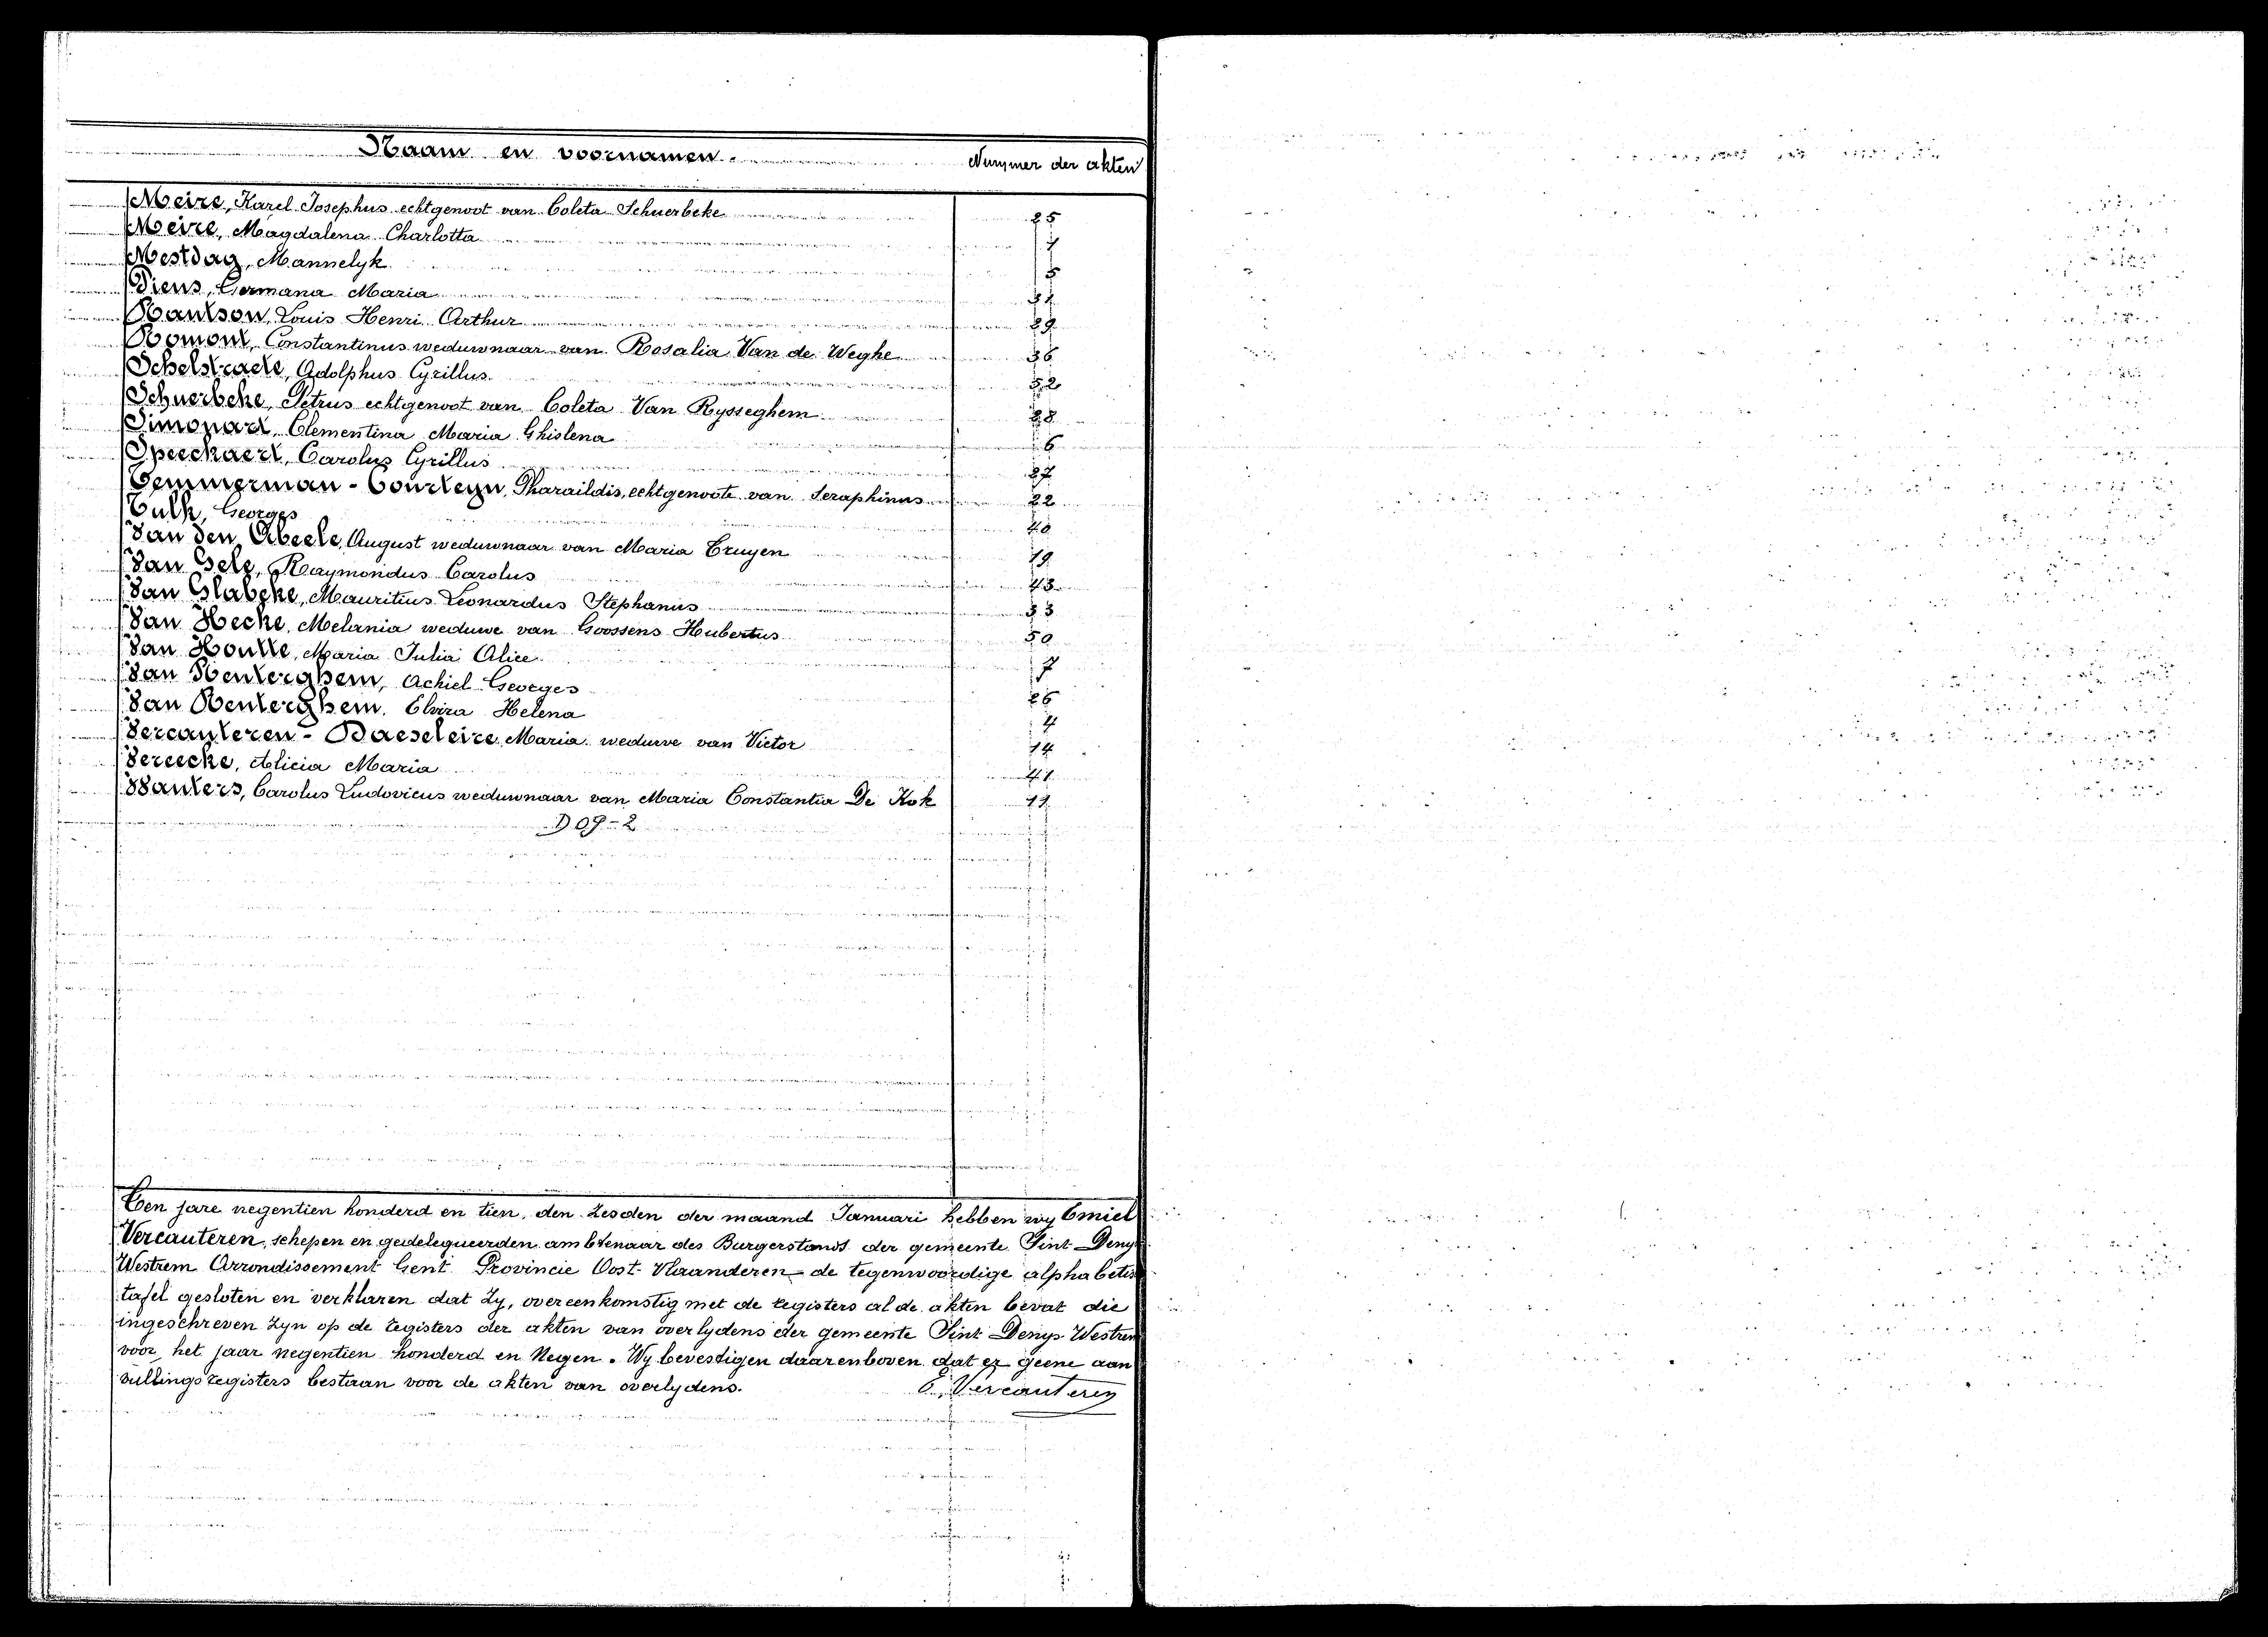 Naam en voornamen. Nummer der akten
Meire, Karel Josephus echtgenoot van Coleta Schuerbeke 25
Meire, Magdalena Charlotta
Mestdag, Mannelyk
Piens, Germana Maria
Rautson, Louis Henri Arthur
Romont, Constantinus weduwnaar van Rosalia Van de Weghe 36
Schelstraete, Adolphus Cyrillus
Schuerbeke, Petrus echtgenoot van Coleta Van Rysseghem 28
Simonart, Clementina Maria Ghislena 6
Speeckaert, Carolus Cyrillus
Temmerman - Courteyn, Pharaildis, echtgenoote van Seraphinus 22
Tulk, Georges
Van den Abeele, August weduwnaar van Maria Truyen 19
Van Belz, Raymondus Carolus
Van Glabeke, Mauritius Leonardus Stephanus
Van Hecke, Melania weduwe van Goossens Hubertus 50
Van Houtte, Maria Julia Alice
Van Renterghem, Achiel Georges
Van Renterghem, Elvira Helena
Vercauteren - Baeseleire, Maria weduwe van Victor 14
Vereecke, Alicia Maria
Wauters, Carolus Ludovicus weduwnaar van Maria Constantia De Kok
D 09-2
Ten jare negentien honderd en tien, den zesden der maand Januari hebben wy Emiel
Vercauteren, schepen en gedelegueerden ambtenaar des Burgerstands der gemeente Sint Denys
Westrem Arrondissement Gent Provincie Oost-Vlaanderen de tegenwoordige alphabetis
tafel gesloten en verklaren dat zy, overeenkomstig met de registers al de akten bevat die
ingeschreven zyn op de registers der akten van overlydens der gemeente Sint Denys-Westrem
voor het jaar negentien honderd en Negen. Wy bevestigen daarenboven dat er geene aan
vullingsregisters bestaan voor de akten van overlydens. E. Vercauteren